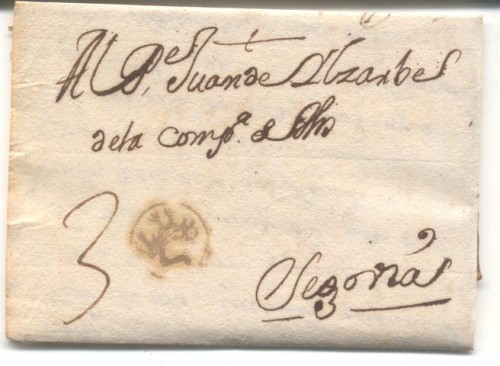 Al P.e Juan de Alzarbe
de la comp.a de Jhs
3
Segovia